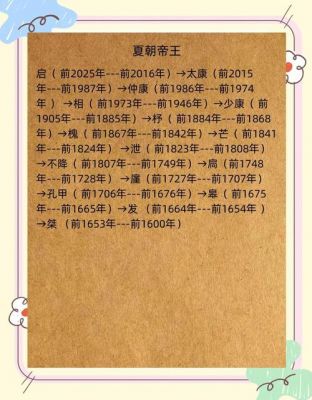 夏朝帝王
启（ 前2025年---前2016年）→太康（前2015
年---前1987年）→仲康（前1986年---前1974
年 ）→相（ 前1973年---前1946年）→少康（ 前
1905年---前1885年）→杼（ 前1884年---前1868
年）→槐（ 前1867年---前1842年）→芒（ 前1841
年---前1824年 ）→泄（ 前1823年---前1808年）
→不降（ 前1807年---前1749年）→扃（前1748
年---前1728年 ）→廑（ 前1727年---前1707年）
→孔甲（ 前1706年---前1676年）→皋（ 前1675
年---前1665年）→发（ 前1664年---前1654年 ）
→桀（ 前1653年---前1600年）